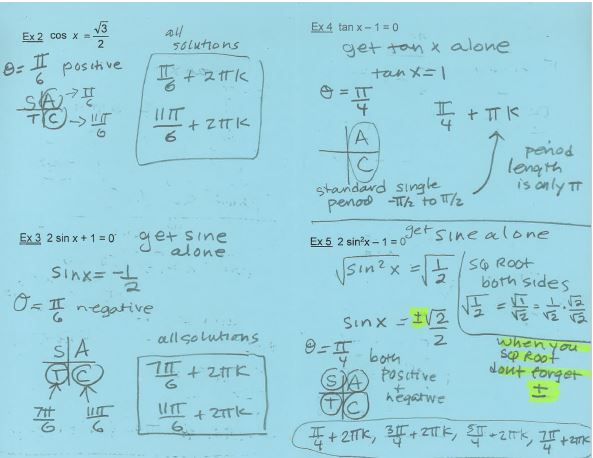 Ex 2 cos x = √3/2
all solutions
θ = π/6 positive
S A → π/6
T C → 11π/6
π/6 + 2πK
11π/6 + 2πK
Ex 4 tan x – 1 = 0
get tan x alone
tan x = 1
θ = π/4
π/4 + πK
A
C
period
length
is only π
standard single
period -π/2 to π/2
Ex 3 2 sin x + 1 = 0
get sine
alone
sin x = -1/2
θ = π/6 negative
S A
T C
7π/6 11π/6
all solutions
7π/6 + 2πK
11π/6 + 2πK
Ex 5 2 sin²x – 1 = 0
get sine alone
√sin²x = √1/2
SQ ROOT
both sides
√1/2 = √1/√2 = 1/√2 · √2/√2
sin x = ±√2/2
when you
SQ ROOT
dont forget
±
θ = π/4 both
positive
+
negative
S A
T C
π/4 + 2πK, 3π/4 + 2πK, 5π/4 + 2πK, 7π/4 + 2πK